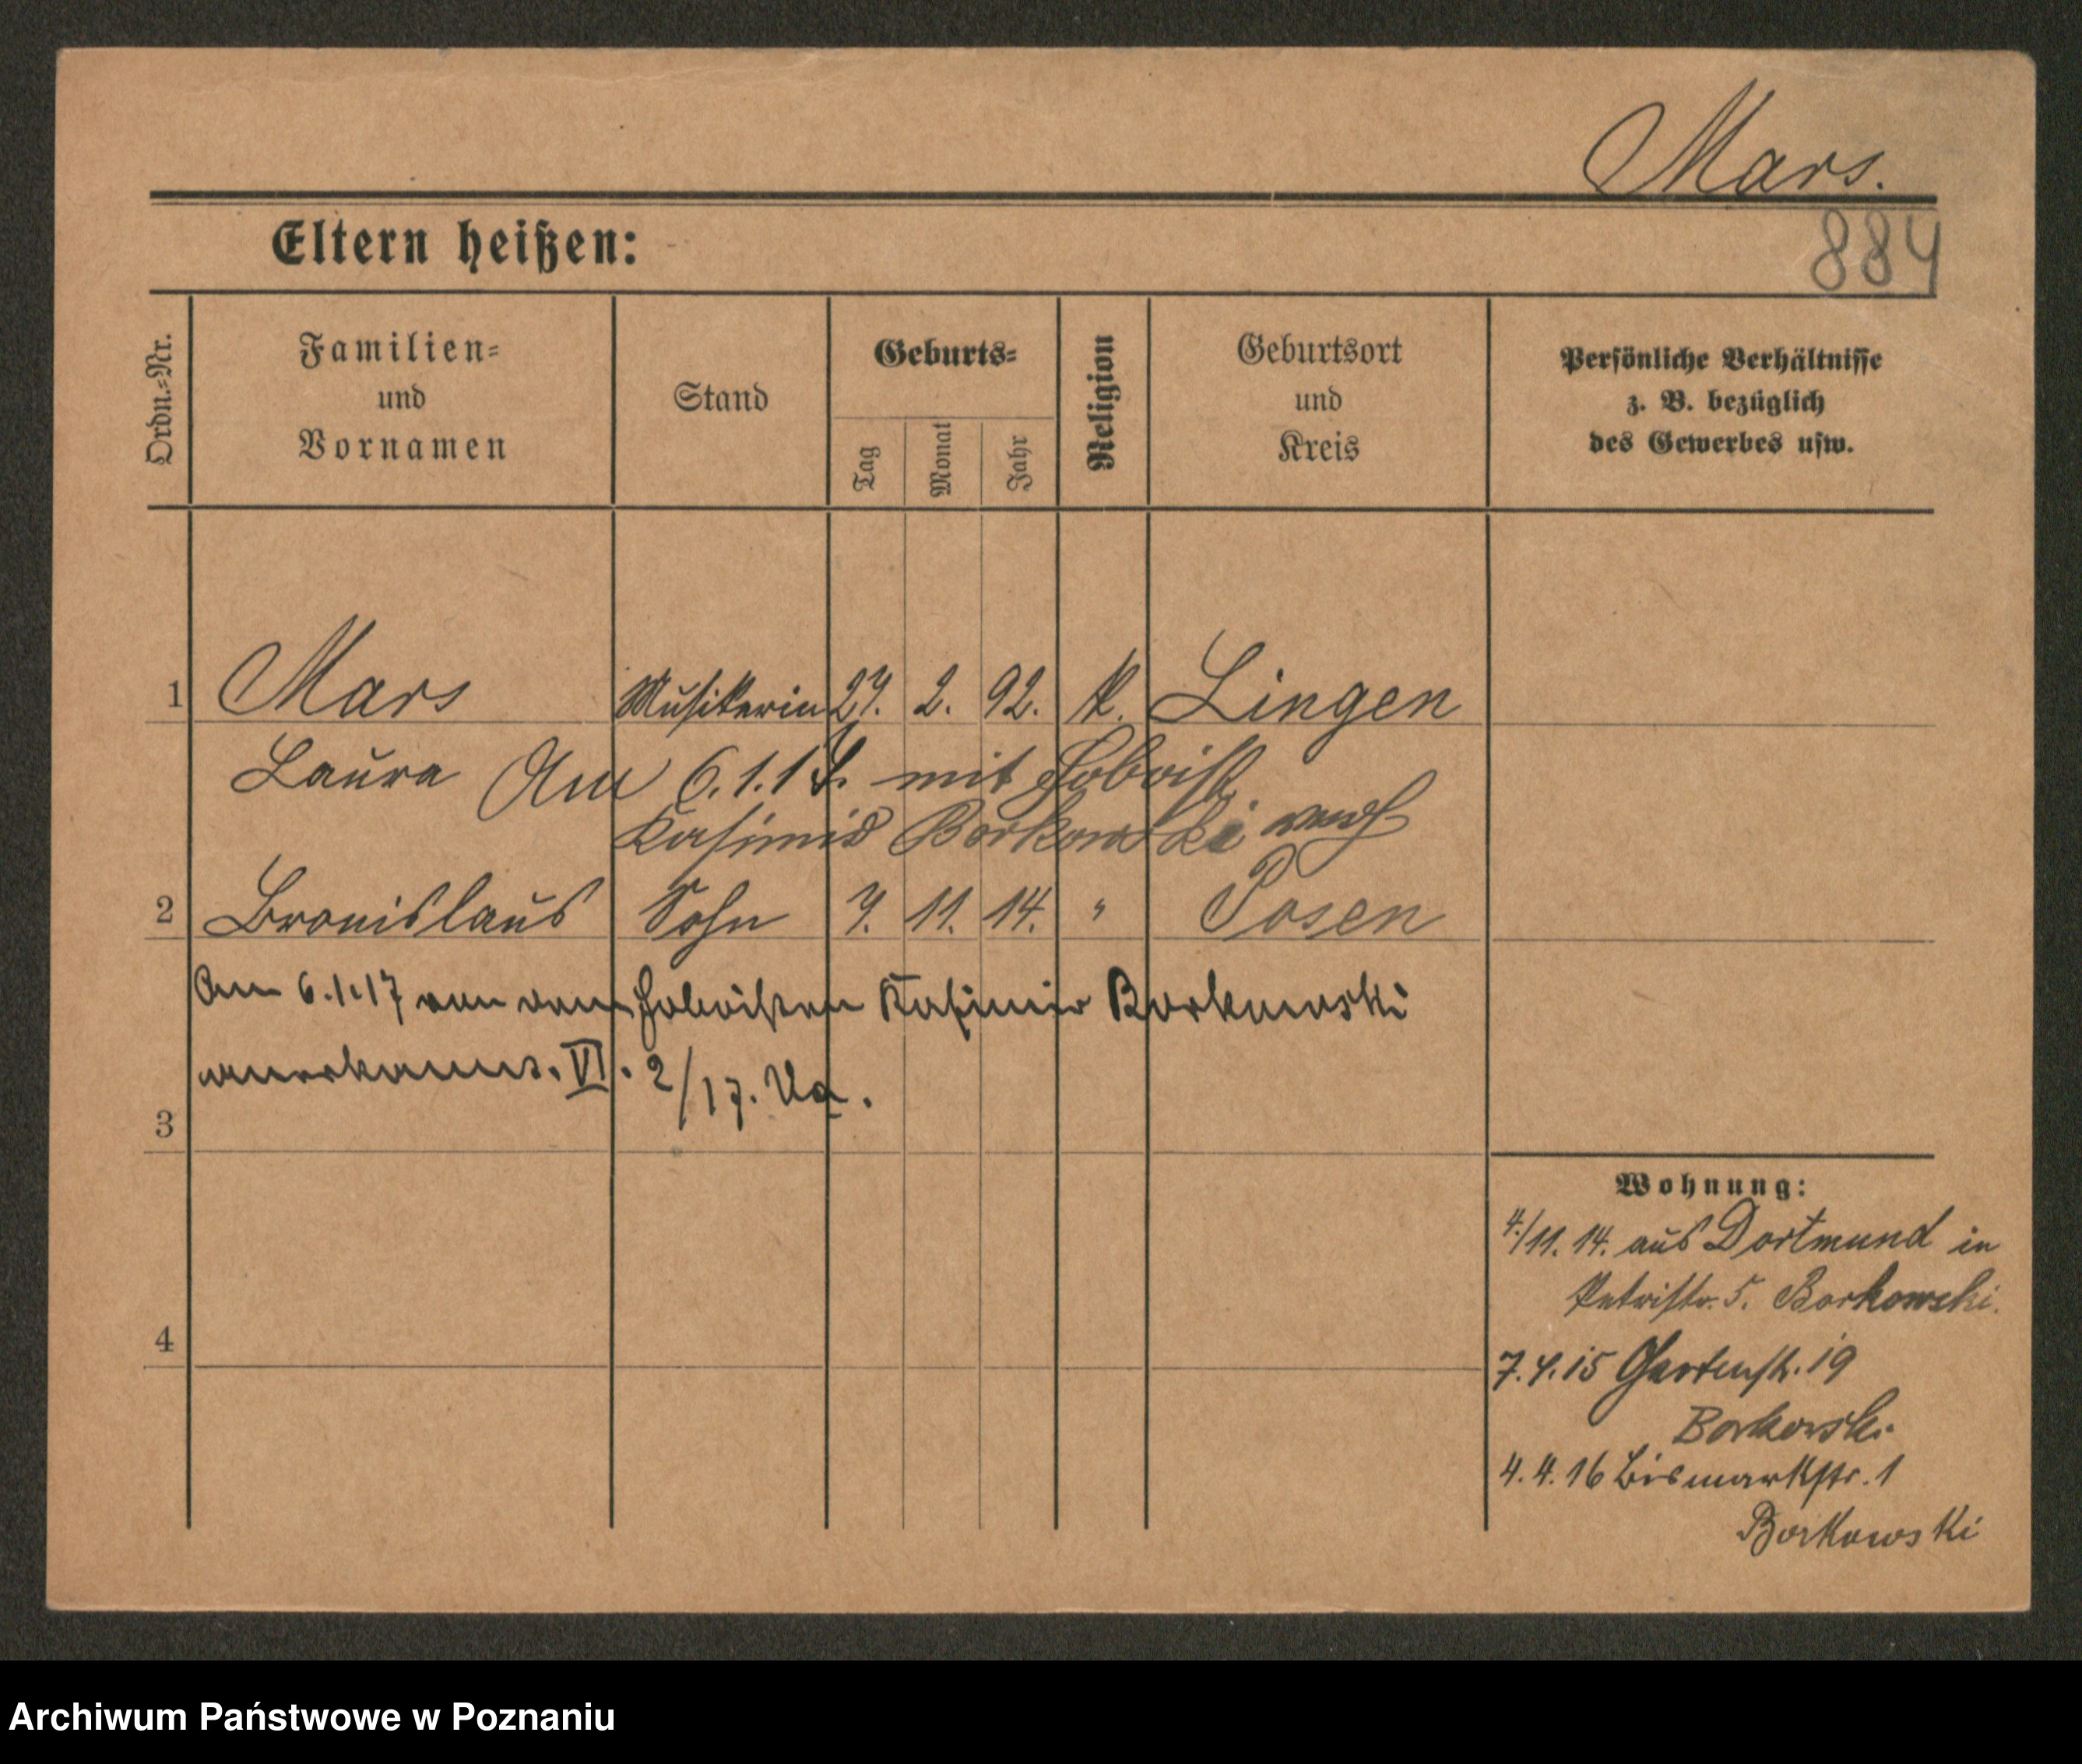 Mars.
Eltern heißen:
884
Ordn.-Nr.
Familien-
und
Vornamen
Stand
Geburts-
Tag
Monat
Jahr
Religion
Geburtsort
und
Kreis
Persönliche Verhältnisse
z. B. bezüglich
des Gewerbes usw.
1 Mars Musikerin 27. 2. 92. k. Lingen
Laura Am 6.1.17. mit Hoboist
Kasimir Borkowski verh
2 Bronislaus Sohn 7. 11. 14. " Posen
Am 6.1.17 von dem Hoboisten Kasimir Borkowski
anerkannt. VI. 2/17. Va.
3
4
Wohnung:
4./11. 14. aus Dortmund in
Petristr. 5. Borkowski.
7.4.15 Gartenstr. 19
Borkowski
4.4.16 Bismarkstr. 1
Borkowski
Archiwum Państwowe w Poznaniu